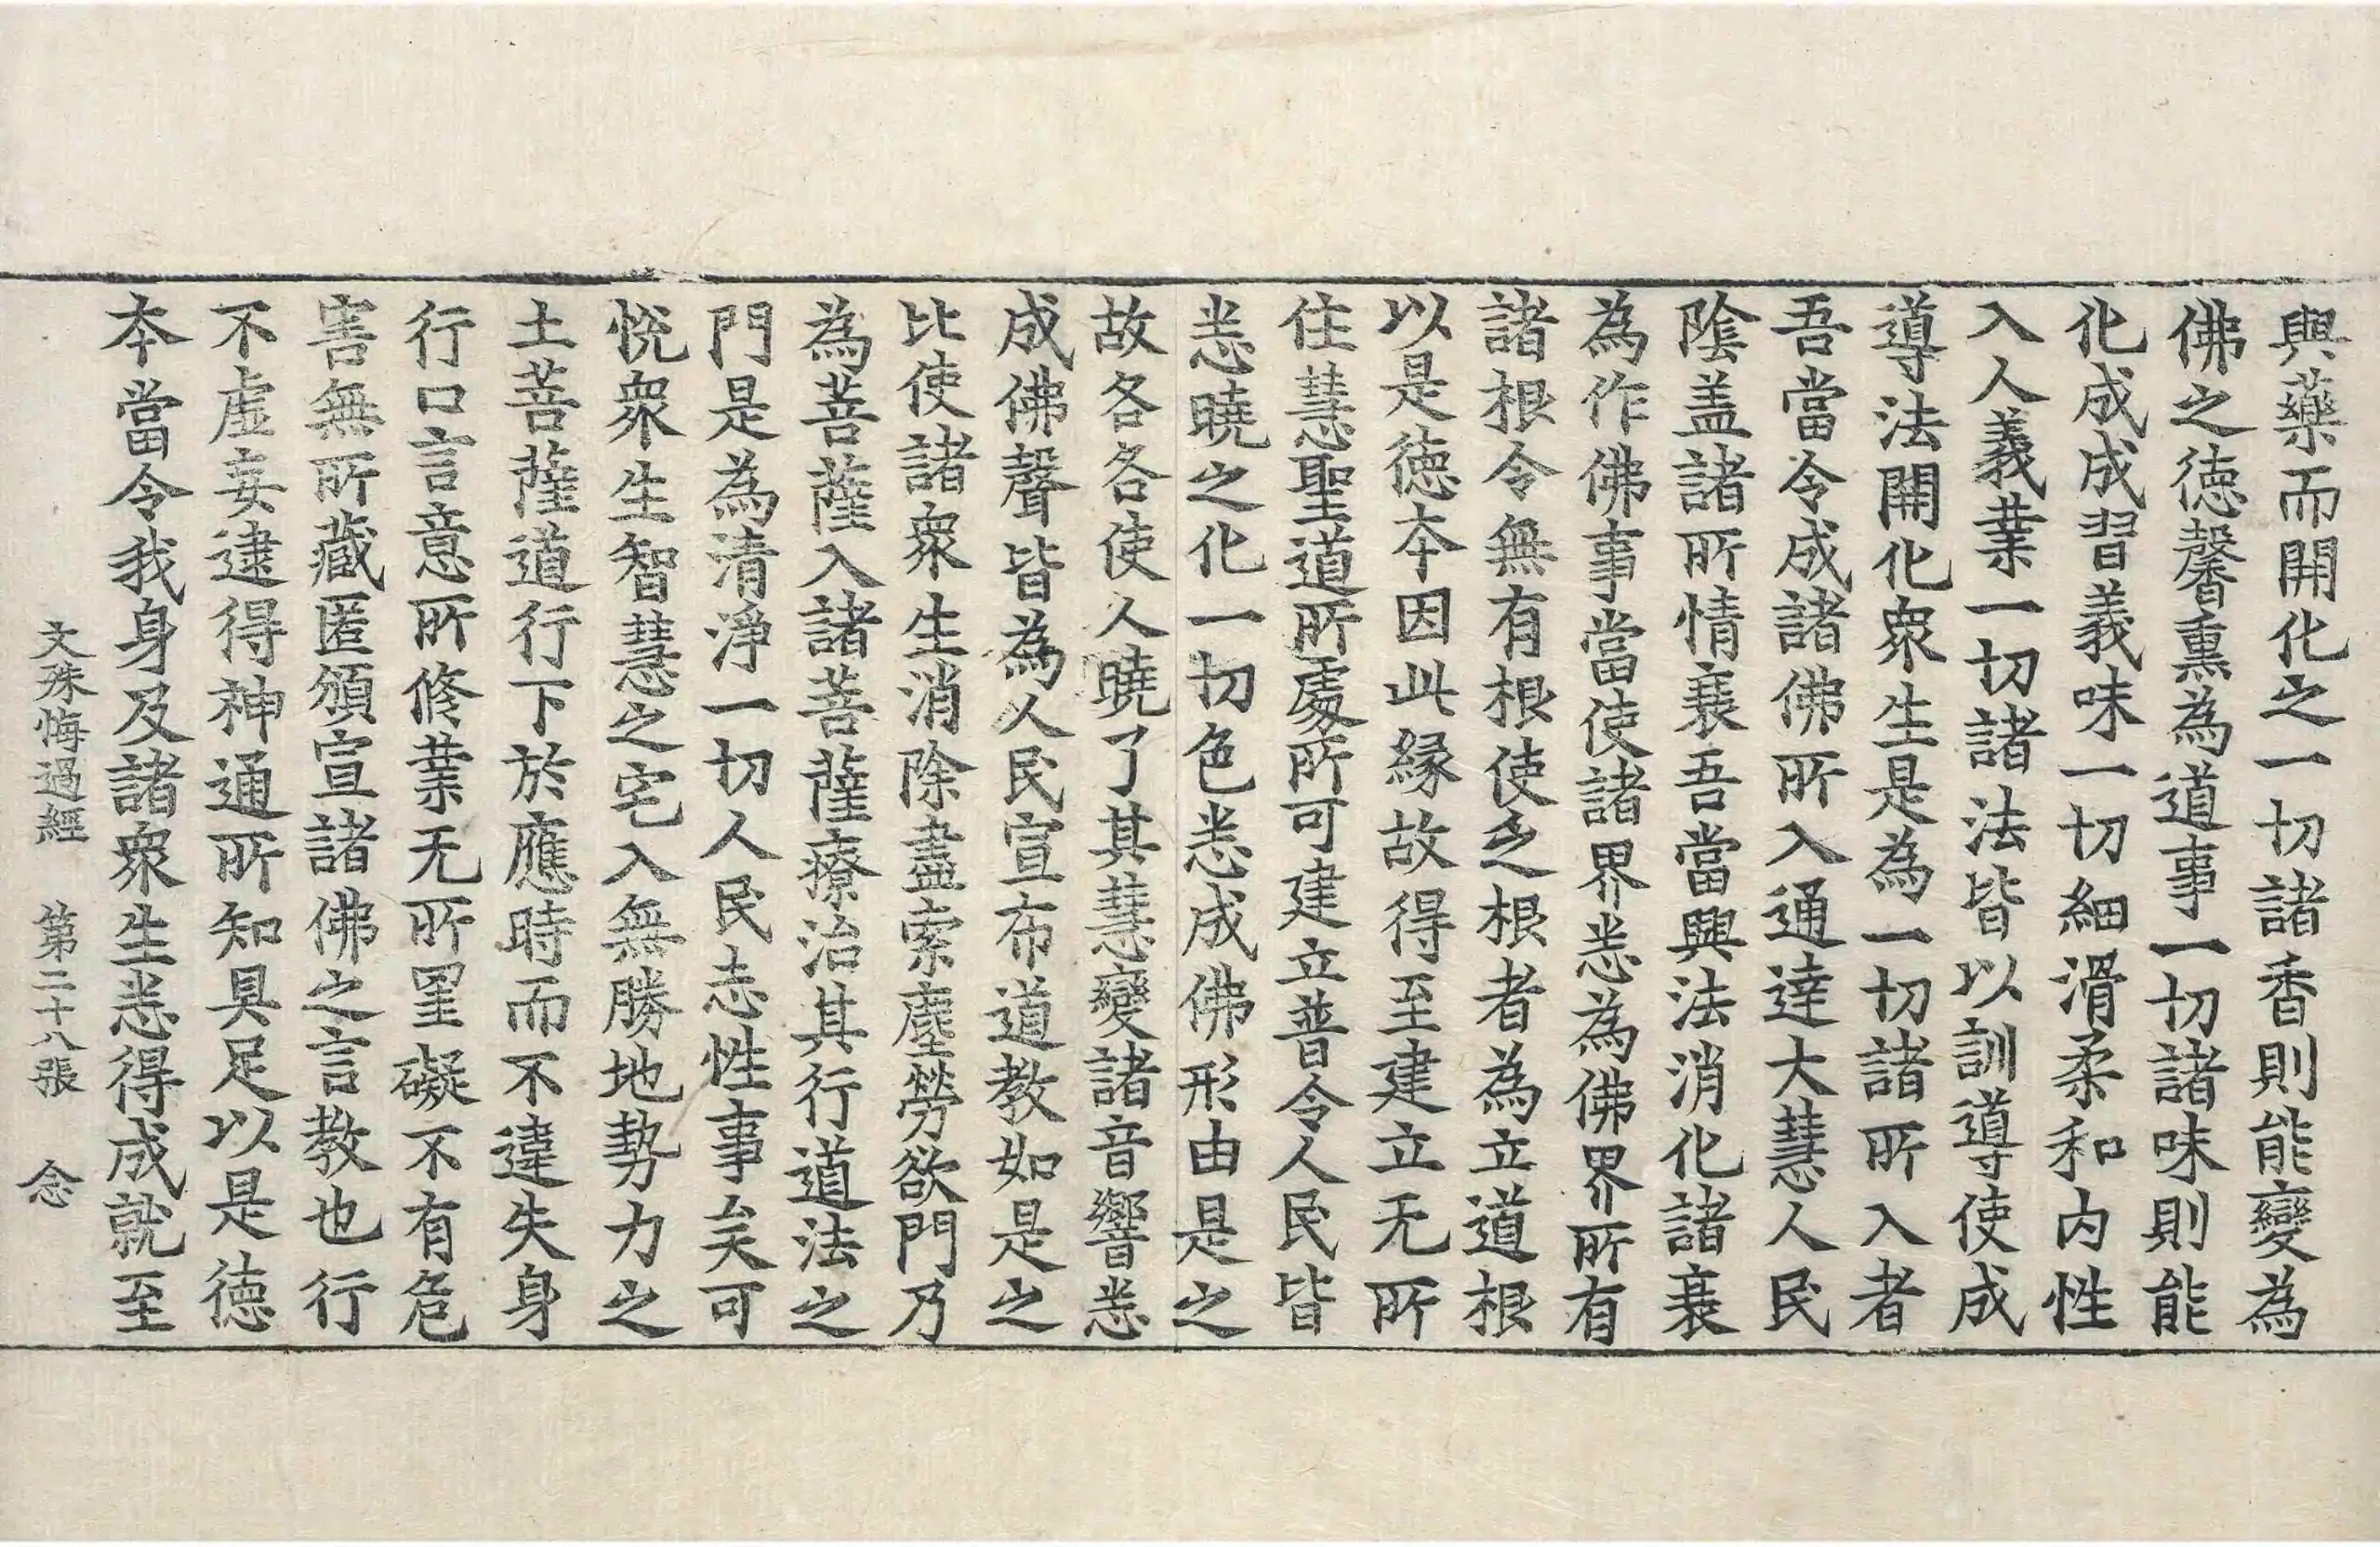 與藥而開化之一切諸香則能變為
佛之德馨熏為道事一切諸味則能
化成成習義味一切細滑柔和內性
入人義業一切諸法皆以訓導使成
導法開化眾生是為一切諸所入者
吾當令成諸佛所入通達大慧人民
陰盖諸所情衰吾當興法消化諸衰
為作佛事當使諸界悉為佛界所有
諸根令無有根使乏根者為立道根
以是德本因此縁故得至建立无所
住慧聖道所處所可建立普令人民皆
悉曉之化一切色悉成佛形由是之
故各各使人曉了其慧變諸音響悉
成佛聲皆為人民宣布道教如是之
比使諸眾生消除盡索塵勞欲門乃
為菩薩入諸菩薩療治其行道法之
門是為清淨一切人民志性事矣可
恱眾生智慧之宅入無勝地勢力之
土菩薩道行下於應時而不違失身
行口言意所修業无所罣礙不有危
害無所藏匿頒宣諸佛之言教也行
不虛妄逮得神通所知具足以是德
本當令我身及諸眾生悉得成就至
文殊悔過經 第二十八張 念